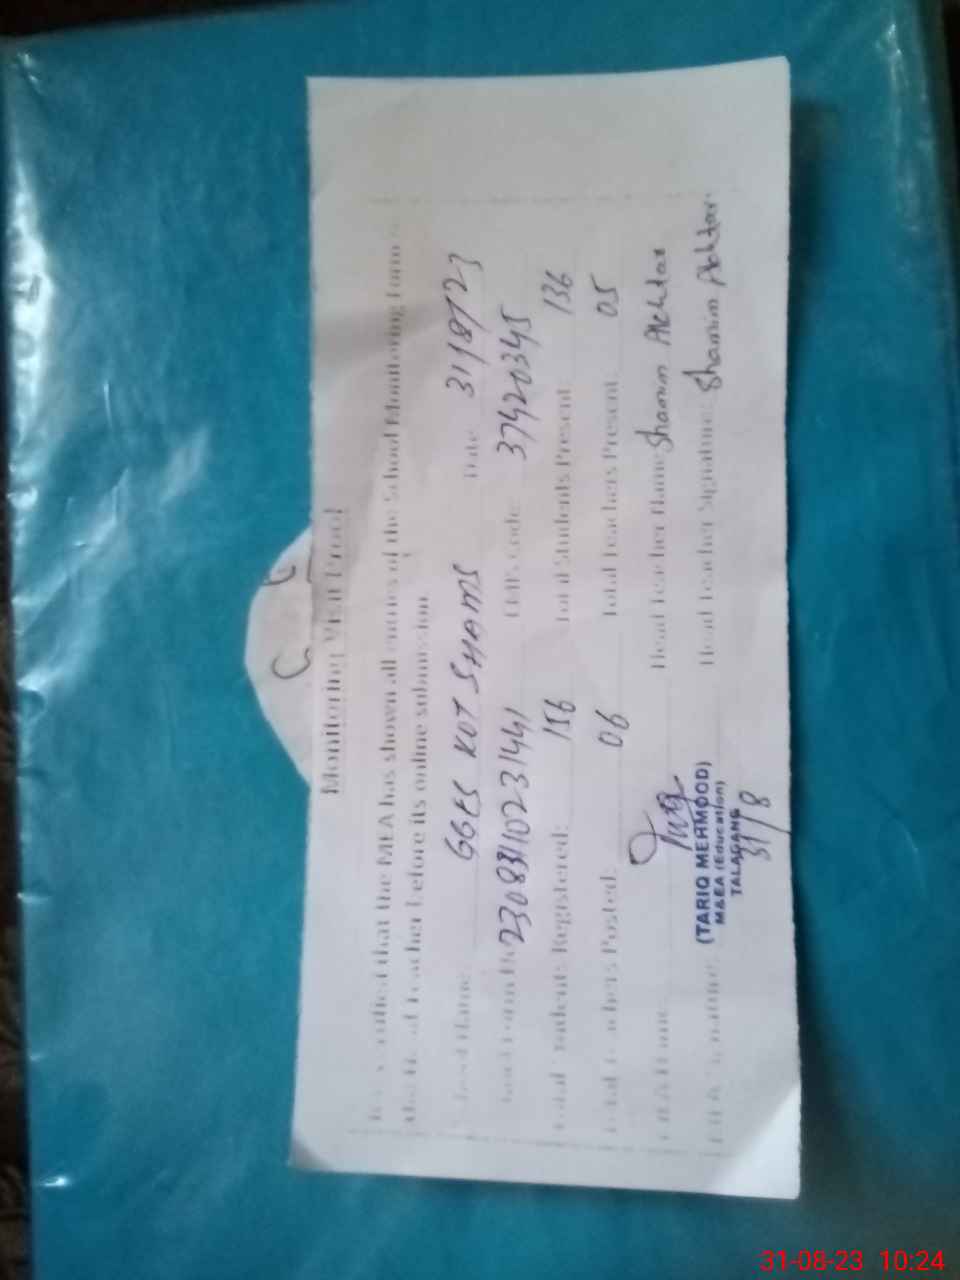 Monitoring Visit Proof
It is verified that the MEA has shown all entries of the School Monitoring Form to
the Head Teacher before its online submission.
School Name: GGES KOT SHAMS Date: 31/8/23
EMIS Code: 37420345
Total Students Registered: 156 Total Students Present: 136
Total Teachers Posted: 06 Total Teachers Present: 05
MEA Name: Head Teacher Name: Shamim Akhtar
MEA Signature: Head Teacher Signature: Shamim Akhtar.
(TARIQ MEHMOOD)
M&EA (Education)
TALAGANG
31/8
31-08-23 10:24